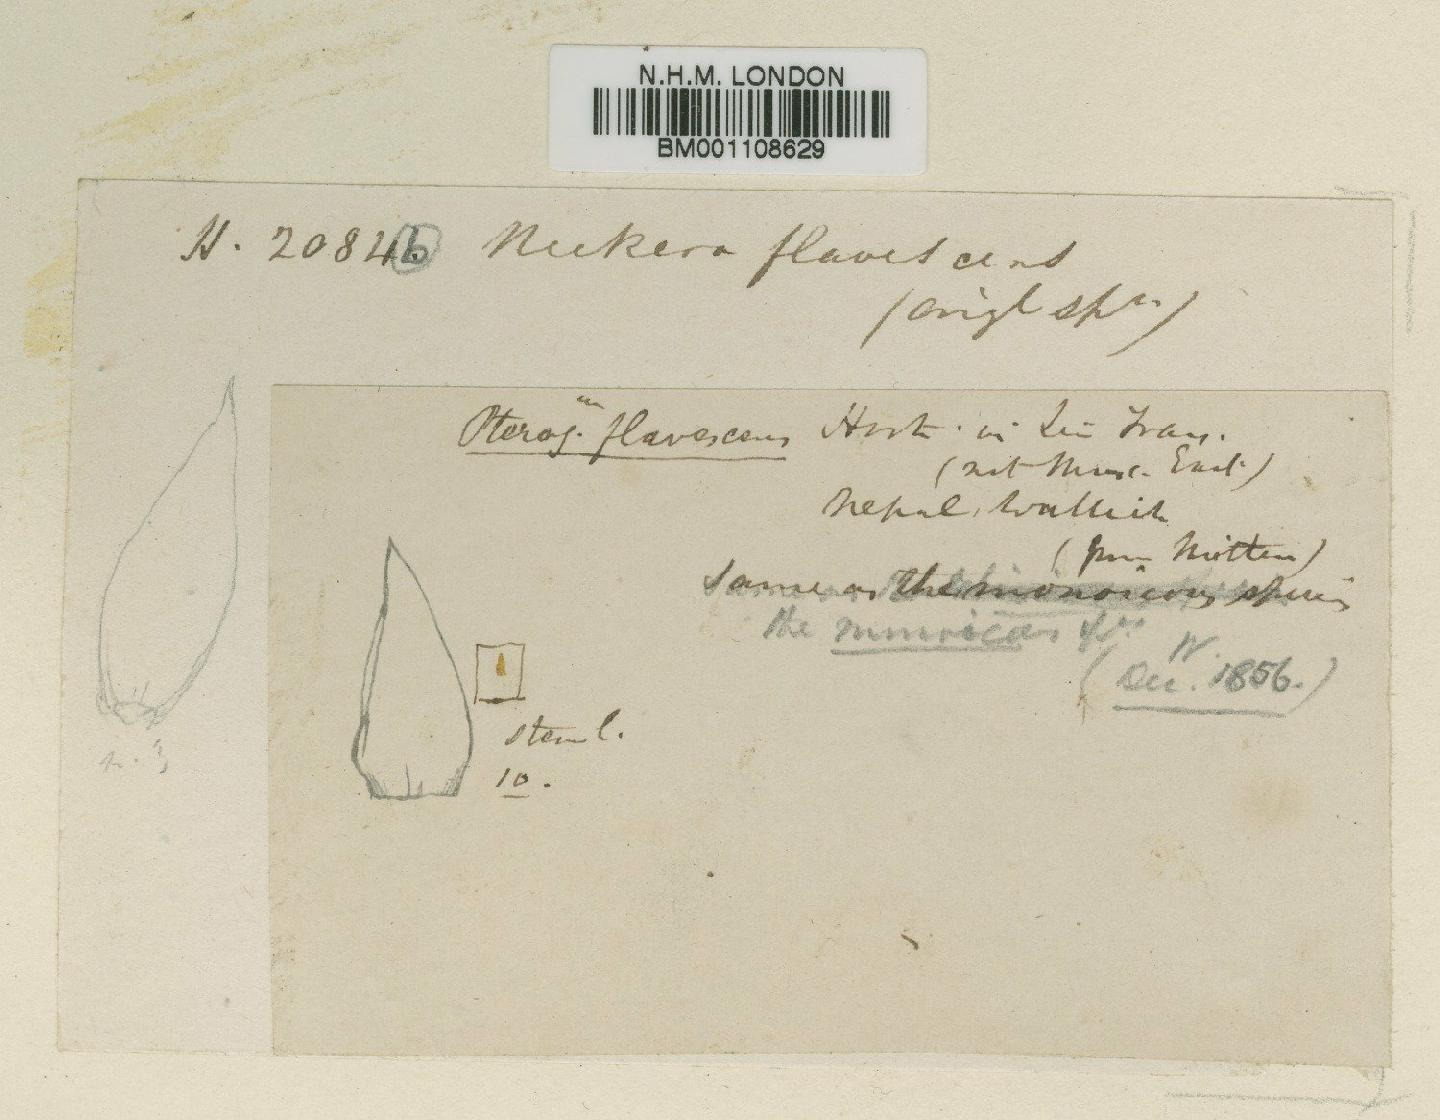 N.H.M. LONDON
BM001108629
H. 2084b Neckera flavescens
(origl spn.)
Pterog.m flavescens Hook. in Lin Trans.
(not Musc. Exot.)
Nepal, Wallich
(from Mitten)
Same as the monoicous species
the
W.
(Dec. 1856.)
stem l.
10.